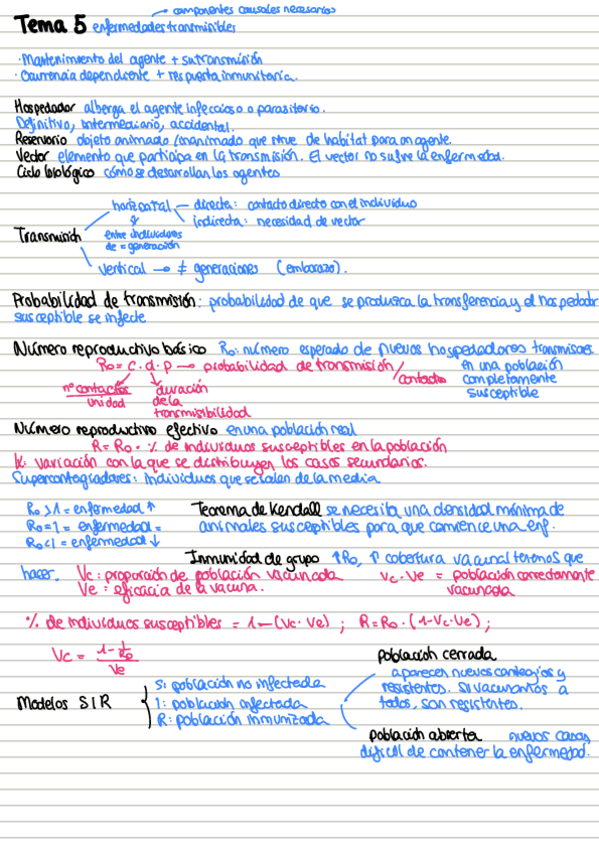 componentes causales necesarios
Tema 5 enfermedades transmisibles
· Mantenimiento del agente + su transmisión
· Ocurrencia dependiente + respuesta inmunitaria.
Hospedador alberga el agente infeccioso o parasitario.
Definitivo, intermediario, accidental.
Reservorio objeto animado/inanimado que sirve de habitat para un agente.
Vector elemento que participa en la transmisión. El vector no sufre la enfermedad.
Ciclo biológico cómo se desarrollan los agentes
horizontal — directa: contacto directo con el individuo
indirecta: necesidad de vector
Transmisión
entre individuos
de = generación
vertical → ≠ generaciones (embarazo).
Probabilidad de transmisión: probabilidad de que se produzca la transferencia y el hospedador
susceptible se infecte
Número reproductivo básico Ro: número esperado de nuevos hospedadores transmisores
en una población
completamente
susceptible
Ro = c · d · p → probabilidad de transmisión/contacto
nº contactos
unidad
duración
de la
transmisibilidad
Número reproductivo efectivo en una población real
R = Ro · % de individuos susceptibles en la población
K: variación con la que se distribuyen los casos secundarios.
Supercontagiadores: individuos que se salen de la media
Ro > 1 = enfermedad ↑
Ro = 1 = enfermedad =
Ro < 1 = enfermedad ↓
Teorema de Kendall se necesita una densidad mínima de
animales susceptibles para que comience una enf.
Inmunidad de grupo ↑Ro, ↑ cobertura vacunal tenemos que
hacer. Vc: proporción de población vacunada
Ve: eficacia de la vacuna.
Vc · Ve = población correctamente
vacunada
% de individuos susceptibles = 1 - (Vc · Ve) ; R = Ro · (1 - Vc · Ve) ;
Vc = (1 - 1/Ro) / Ve
Modelos SIR
S: población no infectada
I: población infectada
R: población inmunizada
población cerrada
aparecen nuevos contagios y
resistentes. Si vacunamos a
todos, son resistentes.
población abierta nuevos casos,
difícil de contener la enfermedad.